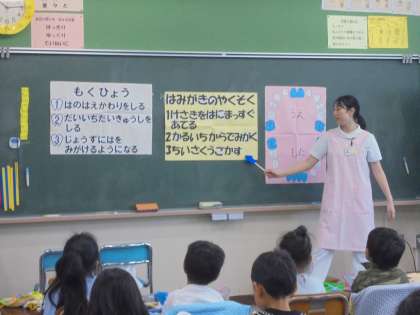 もくひょう
①はのはえかわりをしる
②だいいちだいきゅうしを
しる
③じょうずにはを
みがけるようになる
はみがきのやくそく
1けさきをはにまっすぐ
あてる
2かるいちからでみがく
3ちいさくうごかす
うえ
した